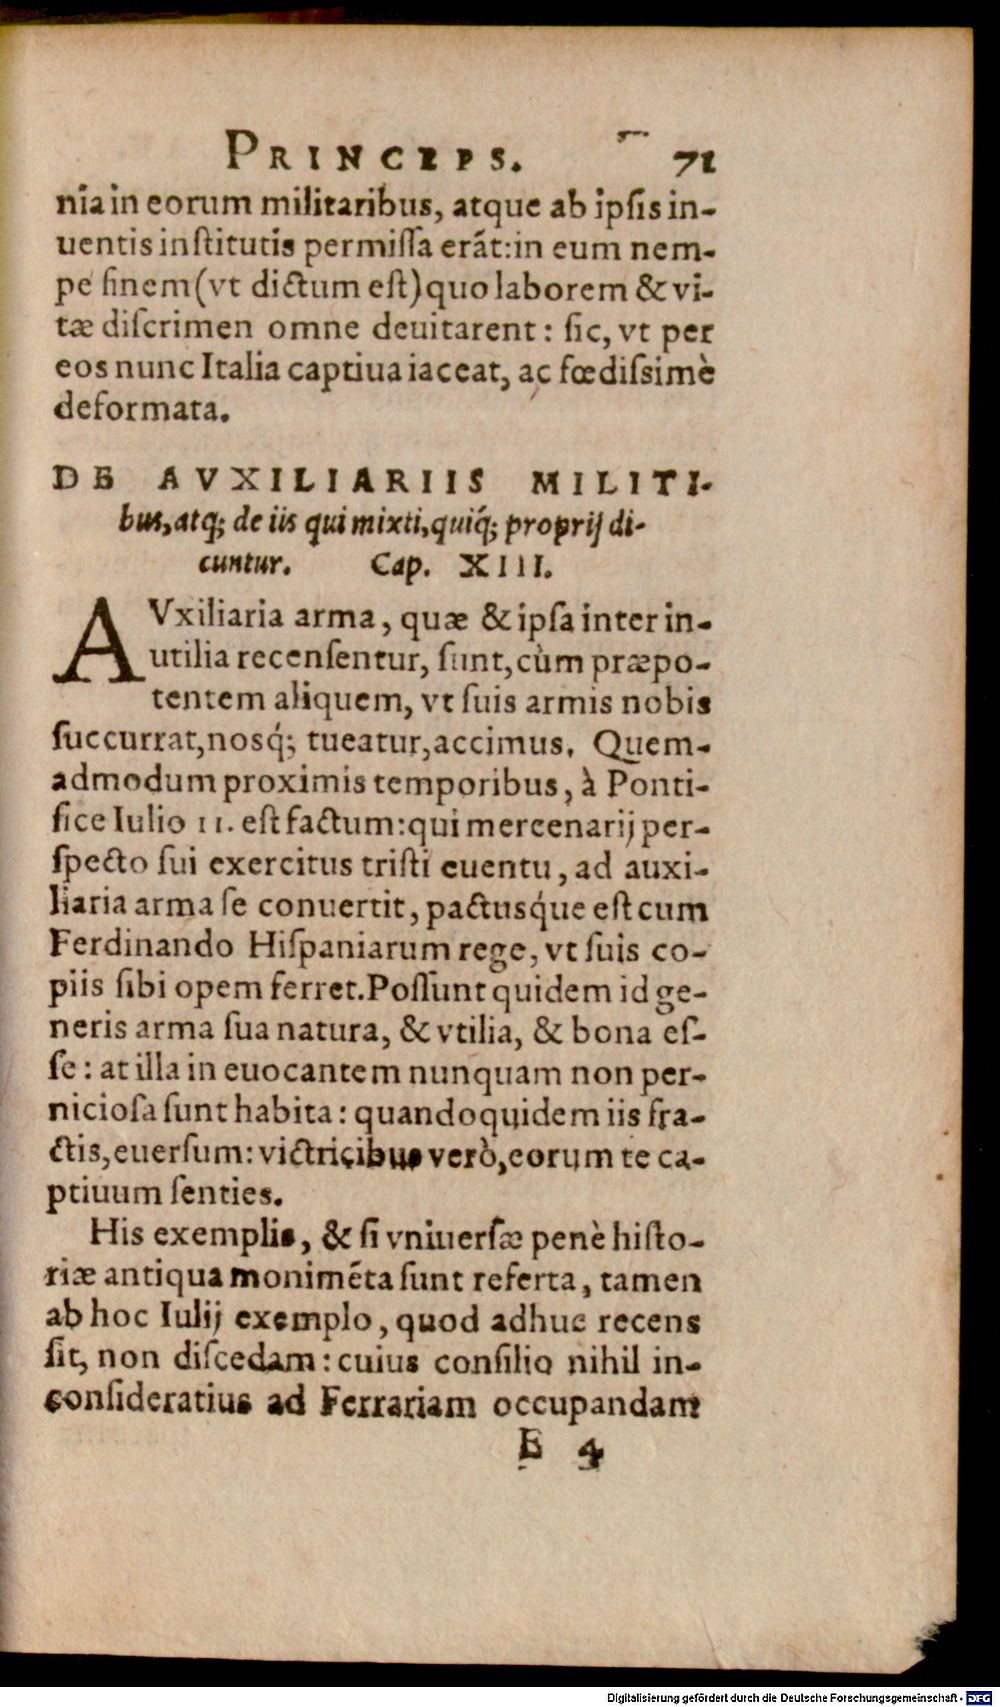 PRINCEPS. 71
nia in eorum militaribus, atque ab ipſis in-
uentis inſtitutis permiſſa erāt: in eum nem-
pe finem (vt dictum eſt) quo laborem & vi-
tæ diſcrimen omne deuitarent: ſic, vt per
eos nunc Italia captiua iaceat, ac fœdiſsimè
deformata.
DE AVXILIARIIS MILITI-
bus, atq; de iis qui mixti, quiq́; proprij di-
cuntur. Cap. XIII.
AVxiliaria arma, quæ & ipſa inter in-
utilia recenſentur, ſunt, cùm præpo-
tentem aliquem, vt ſuis armis nobis
ſuccurrat, nosq́; tueatur, accimus. Quem-
admodum proximis temporibus, à Ponti-
fice Iulio II. eſt factum: qui mercenarij per-
ſpecto ſui exercitus triſti euentu, ad auxi-
liaria arma ſe conuertit, pactusq́ue eſt cum
Ferdinando Hiſpaniarum rege, vt ſuis co-
piis ſibi opem ferret. Poſſunt quidem id ge-
neris arma ſua natura, & vtilia, & bona eſ-
ſe: at illa in euocantem nunquam non per-
nicioſa ſunt habita: quandoquidem iis fra-
ctis, euerſum: victricibus verò, eorum te ca-
ptiuum ſenties.
His exemplis, & ſi vniuerſæ penè hiſto-
riæ antiqua monimēta ſunt referta, tamen
ab hoc Iulij exemplo, quod adhuc recens
ſit, non diſcedam: cuius conſilio nihil in-
conſideratius ad Ferrariam occupandam
E 4
Digitalisierung gefördert durch die Deutsche Forschungsgemeinschaft - DFG